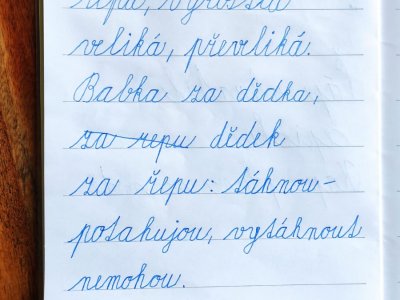 řepa, vyrostla
veliká, převliká.
Babka za dědka,
za repu dědek
za řepu: táhnou-
potahujou, vytáhnout
nemohou.